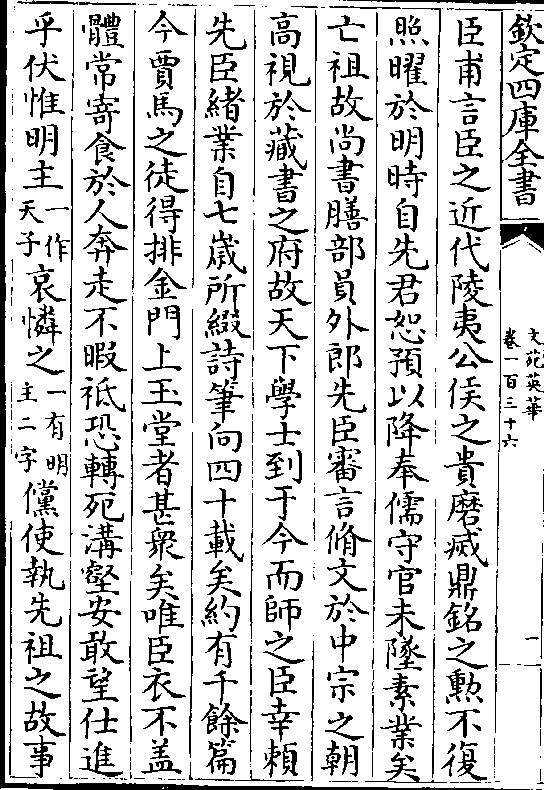 欽定四庫全書
文苑英華
卷一百三十六
一
臣甫言臣之近代陵夷公侯之貴磨滅鼎銘之勲不復
照曜於明時自先君恕預以降奉儒守官未墜素業矣
亡祖故尚書膳部員外郎先臣審言脩文於中宗之朝
高視於藏書之府故天下學士到于今而師之臣幸頼
先臣緒業自七歳所綴詩筆向四十載矣約有千餘篇
今賈馬之徒得排金門上玉堂者甚衆矣唯臣衣不盖
體常寄食於人奔走不暇祗恐轉死溝壑安敢望仕進
乎伏惟明主一作天子哀憐之一有明主二字儻使執先祖之故事